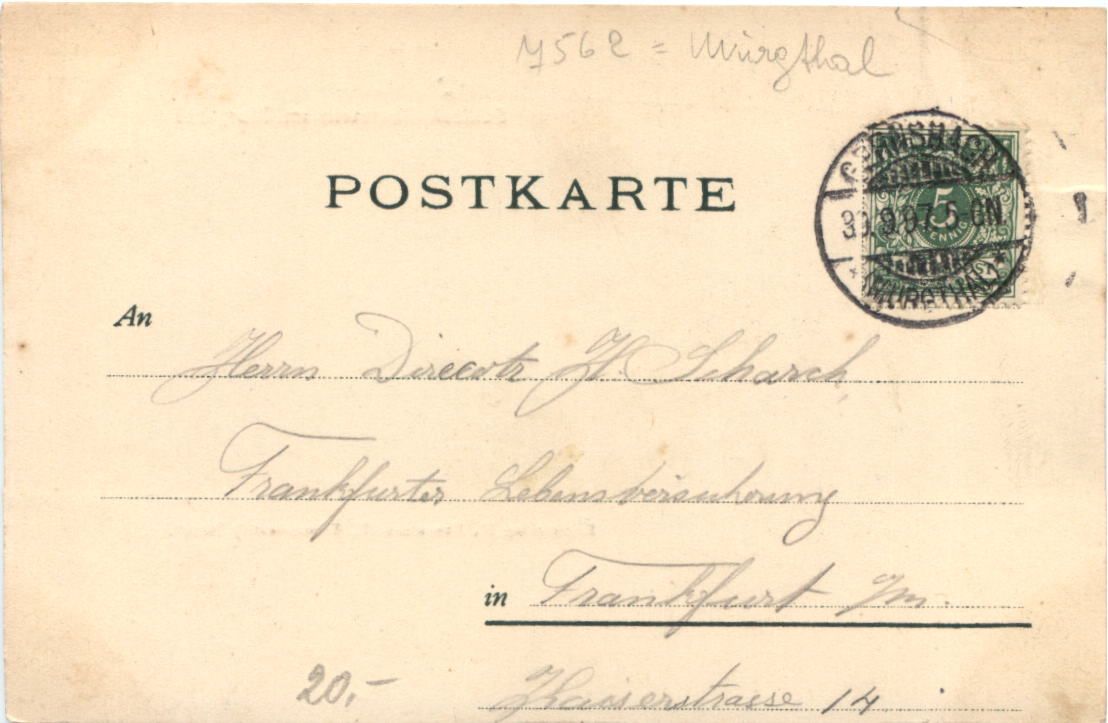 7562 = Murgthal
POSTKARTE
GERNSBACH
30.9.97.5-6N.
* (MURGTHAL) *
5
PFENNIG
An
Herrn Director H. Scharch,
Frankfurter Lebensversicherung
in Frankfurt /m.
20,- Kaiserstrasse 14